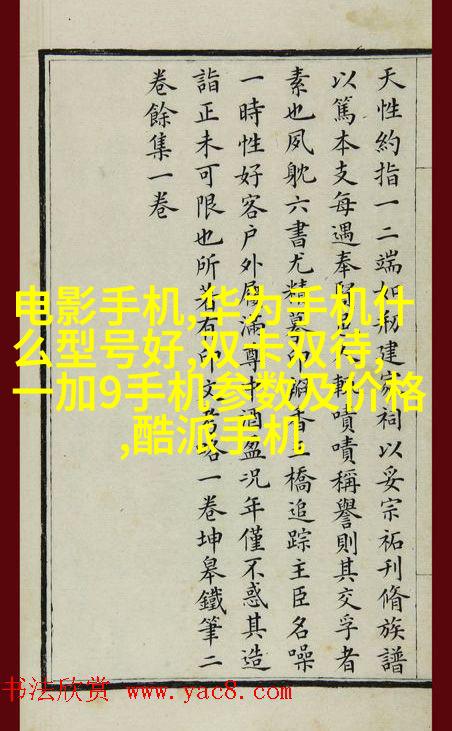 天性約指一二端如剏建祠以妥宗祏刊脩族譜
以篤本支每遇奉嘖嘖稱譽則其交孚者
素也夙躭六書尤精摹印香二橋追踪主臣名噪
一時性好客户外屨滿尊中酒盈况年僅不惑其造
詣正未可限也所著有印文考略一卷坤皋鐵筆二
卷餘集一卷
电影手机,华为手机什
么型号好,双卡双待,
一加9手机参数及价格
,酷派手机
书法欣赏 www.yac8.com